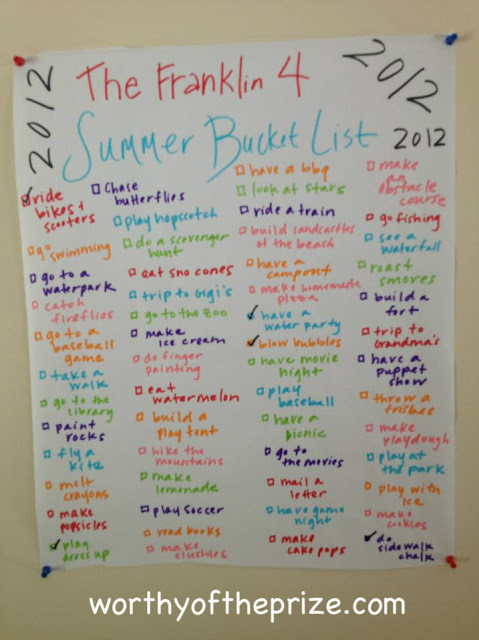 2012
The Franklin 4
2012
Summer Bucket List
2012
ride
bikes +
scooters
go
swimming
go to a
waterpark
catch
fireflies
go to a
baseball
game
take a
walk
go to the
library
paint
rocks
fly a
kite
melt
crayons
make
popsicles
play
dress up
chase
butterflies
play hopscotch
do a scavenger
hunt
eat sno cones
trip to Gigi's
go to the zoo
make
ice cream
do finger
painting
eat
watermelon
build a
play tent
hike the
mountains
make
lemonade
play soccer
read books
make
slushies
have a bbq
look at stars
ride a train
build sandcastles
at the beach
have a
campout
make homemade
pizza
have a
water party
blow bubbles
have movie
night
play
baseball
have a
picnic
go to
the movies
mail a
letter
have game
night
make
cake pops
make
an
obstacle
course
go fishing
see a
waterfall
roast
smores
build a
fort
trip to
Grandma's
have a
puppet
show
throw a
frisbee
make
playdough
play at
the park
play with
ice
make
cookies
do
sidewalk
chalk
worthyoftheprize.com